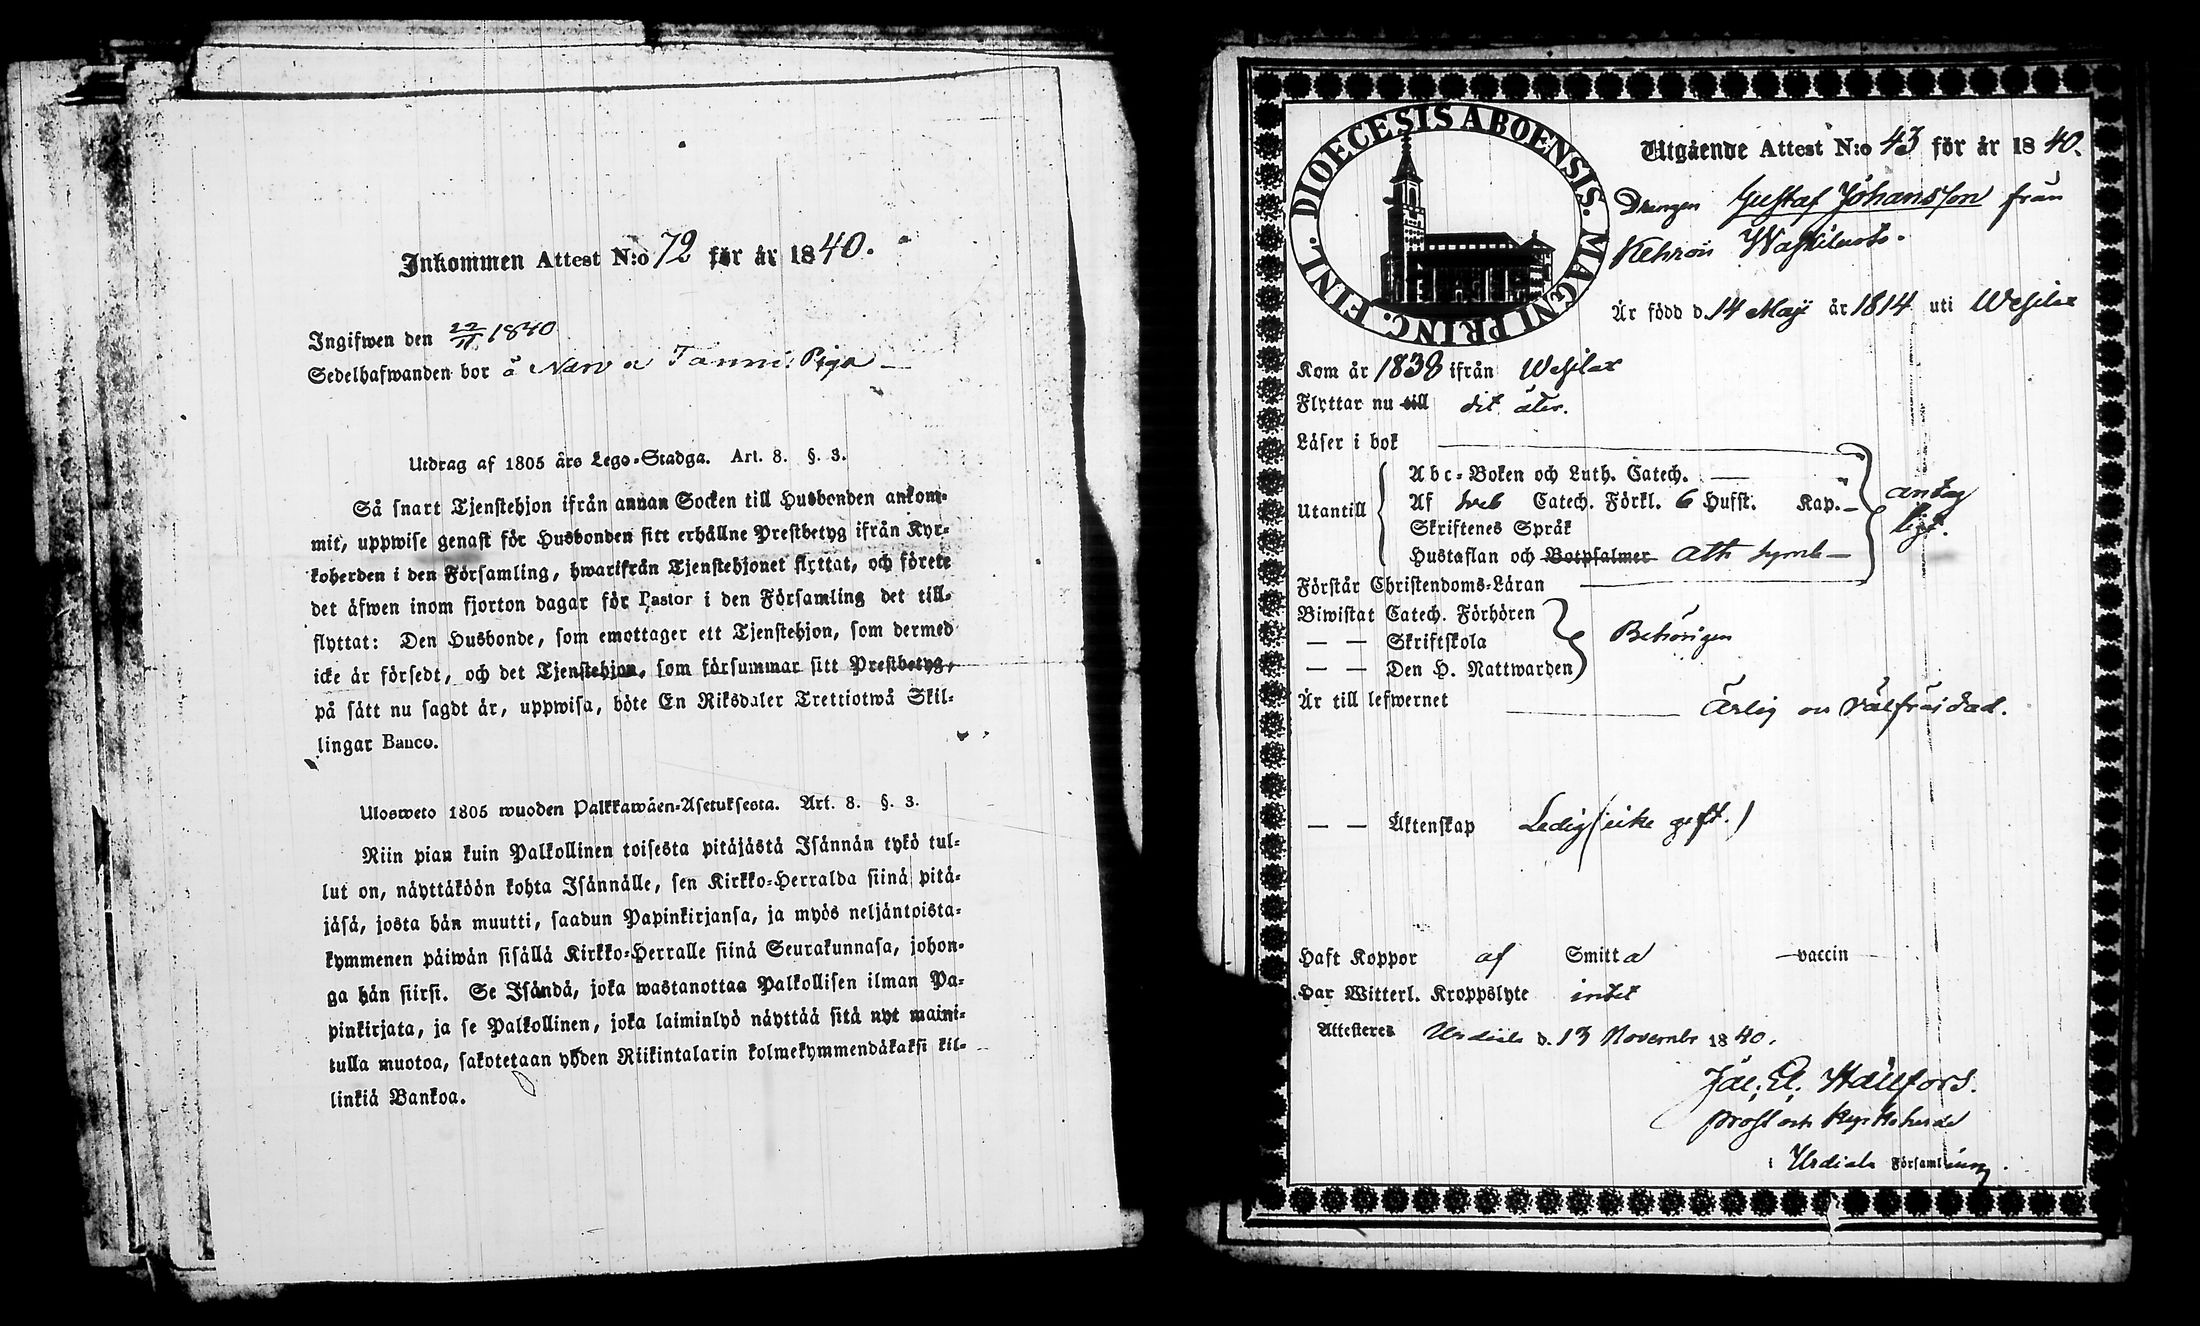 Inkommen Attest N:o 72 för år 1840.
Ingifwen den 22/11 1840
Sedelhafwanden bor å Narva Tanni Piga
Utdrag af 1805 års Lego-Stadga. Art. 8. §. 3.
Så snart Tjenstehjon ifrån annan Socken till Husbonden ankom-
mit, uppwise genast för Husbonden sitt erhållne Prestbetyg ifrån Kyr-
koherden i den Församling, hwarifrån Tjenstehjonet flyttat, och förete
det äfwen inom fjorton dagar för Pastor i den Församling det till-
flyttat: Den Husbonde, som emottager ett Tjenstehjon, som dermed
icke är försedt, och det Tjenstehjon, som försummar sitt Prestbetyg,
på sätt nu sagdt är, uppwisa, böte En Riksdaler Trettiotwå Skil-
lingar Banco.
Ulosweto 1805 wuoden Palkkawäen-Asetuksesta. Art. 8. §. 3.
Niin pian kuin Palkollinen toisesta pitäjästä Isännän tykö tul-
lut on, näyttäköön kohta Isännälle, sen Kirkko-Herralda siinä pitä-
jäsä, josta hän muutti, saadun Papinkirjansa, ja myös neljäntoista-
kymmenen päiwän sisällä Kirkko-Herralle siinä Seurakunnasa, johon-
ga hän siirsi. Se Isändä, joka wastanottaa Palkollisen ilman Pa-
pinkirjata, ja se Palkollinen, joka laiminlyö näyttää sitä nyt maini-
tulla muotoa, sakotetaan yhden Riikintalarin kolmekymmendäkaksi kil-
linkiä Bankoa.
DIOECESIS ABOENSIS. MAGNI PRINC. FINL.
Utgående Attest N:o 43 för år 1840.
Drengen Gustaf Johansson från
Är född d. 14 Maji år 1814 uti Wesilax
Kom år 1838 ifrån Wesilax
Flyttar nu till dit åter.
Läser i bok
Abc-Boken och Luth. Catech.
Utantill Af Sveb Catech. Förkl. 6 Hufst. Kap. antag
Skriftenes Språk ligt.
Hustaflan och Botpsalmer Ath Symb
Förstår Christendoms-Läran
Biwistat Catech. Förhören
— — Skriftskola Behörigen
— — Den H. Nattwarden
Är till lefwernet Ärlig och välfräjdad.
— — Äktenskap Ledig (icke gift.)
Haft Koppor af Smitta vaccin
Har Witterl. Kroppslyte intet
Attesteres Urdiala d. 13 November 1840.
Jac. El. Hällfors.
Prost och Kyrkoherde
i Urdiala Församling.